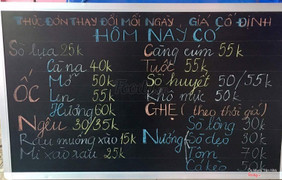 THỰC ĐƠN THAY ĐỔI MỖI NGÀY, GIÁ CỐ ĐỊNH
HÔM NAY CÓ
Sò lụa 25k
ỐC
Cà na 40k
Mỡ 50k
Len 55k
Hương 60k
Nghêu 30/35k
Rau muống xào 15k
Mì xào xát 25k
Càng cúm 55k
Tuốt 55k
Sò huyết 50/55k
Khô mực 50k
GHẸ (theo thời giá)
Nướng
Sò lông 30k
Sò dẹo 30k
Tôm 70k